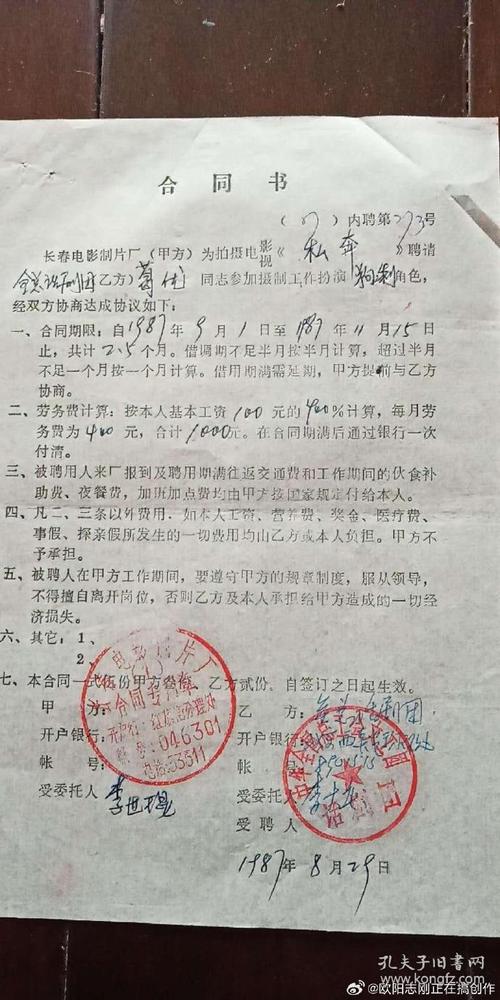 合同书
(87)内聘第273号
长春电影制片厂(甲方)为拍摄电影视《私奔》聘请
全总话剧团(乙方)葛优同志参加摄制工作扮演狗剩角色,
经双方协商达成协议如下:
一、合同期限:自1987年9月1日至1987年11月15日
止,共计2.5个月。借调期不足半月按半月计算,超过半月
不足一个月按一个月计算。借用期满需延期,甲方提前与乙方
协商。
二、劳务费计算:按本人基本工资100元的400%计算,每月劳
务费为400元,合计1000元。在合同期满后通过银行一次
付清。
三、被聘用人来厂报到及聘用期满往返交通费和工作期间的伙食补
助费、夜餐费,加班加点费均由甲方按国家规定付给本人。
四、凡二、三条以外费用,如本人工资、营养费、奖金、医疗费、
事假、探亲假所发生的一切费用均由乙方或本人负担。甲方不
予承担。
五、被聘人在甲方工作期间,要遵守甲方的规章制度,服从领导,
不得擅自离开岗位,否则乙方及本人承担给甲方造成的一切经
济损失。
六、其它:1、
2、
七、本合同一式伍份甲方叁份,乙方贰份,自签订之日起生效。
甲方:
乙方:全总话剧团
开户银行:
开户银行:
帐号:
帐号:
受委托人 李世琨
受委托人
受聘人
电影制片厂
合同专用章
046301
电话:53311
话剧团
1987年8月29日
孔夫子旧书网
@欧阳志刚正在搞创作